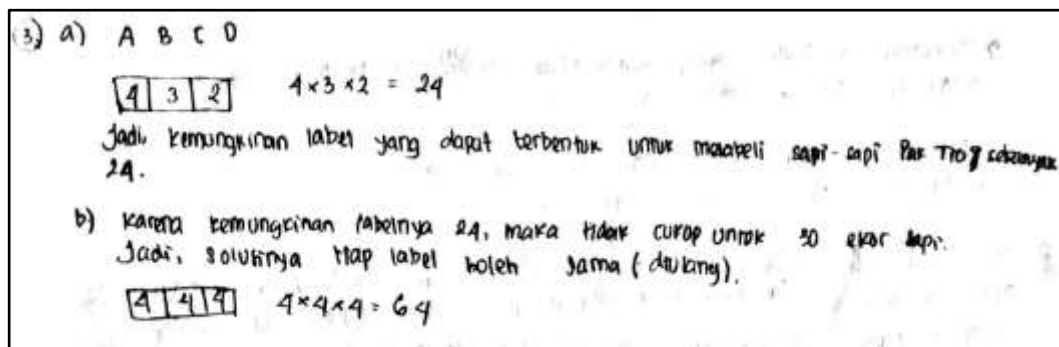 3) a) A B C D
4 3 2 4×3×2 = 24
Jadi, kemungkinan label yang dapat terbentuk untuk melabeli sapi-sapi Pak Tio sebanyak
24.
b) Karena kemungkinan labelnya 24, maka tidak cukup untuk 30 ekor sapi.
Jadi, solusinya tiap label boleh sama (diulang).
4 4 4 4×4×4 = 64